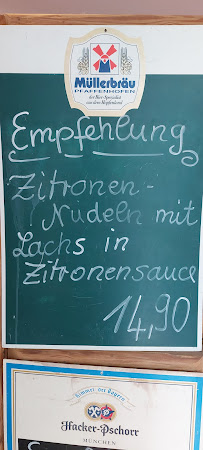 Müllerbräu
PFAFFENHOFEN
der Bier-Spezialist
aus dem Hopfenland
Empfehlung
Zitronen-
Nudeln mit
Lachs in
Zitronensauce
14,90
Himmel der Bayern
Hacker-Pschorr
MÜNCHEN